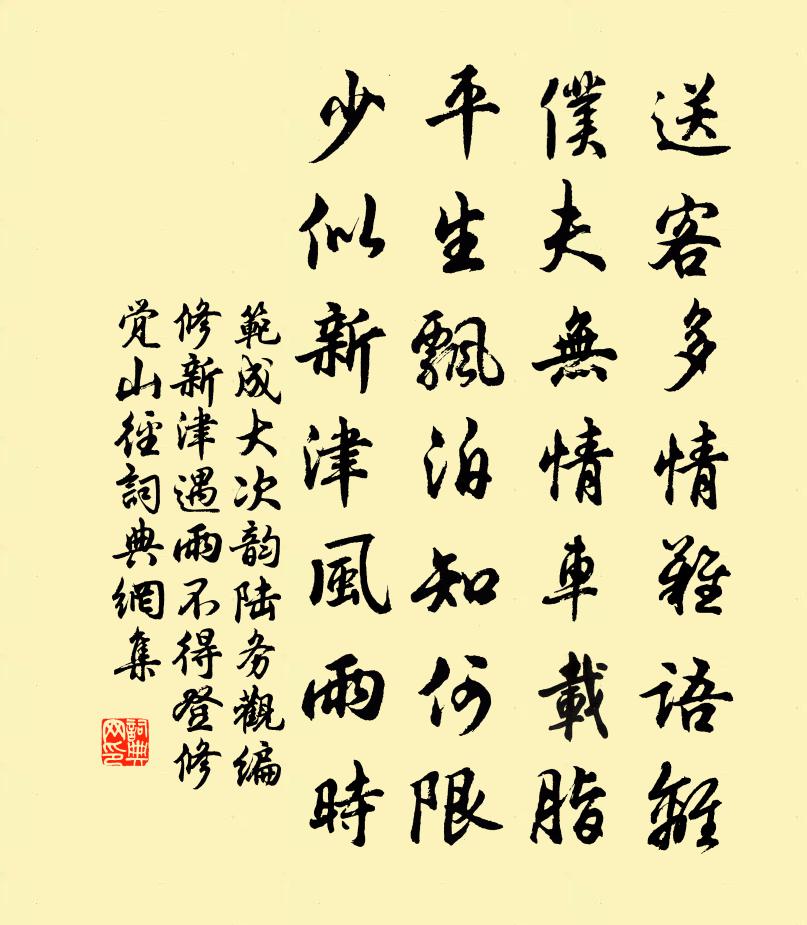 送客多情難語離
僕夫無情車載脂
平生飄泊知何限
少似新津風雨時
範成大次韵陆务觀編
修新津遇雨不得登修
觉山徑詞典網集
詞典网印